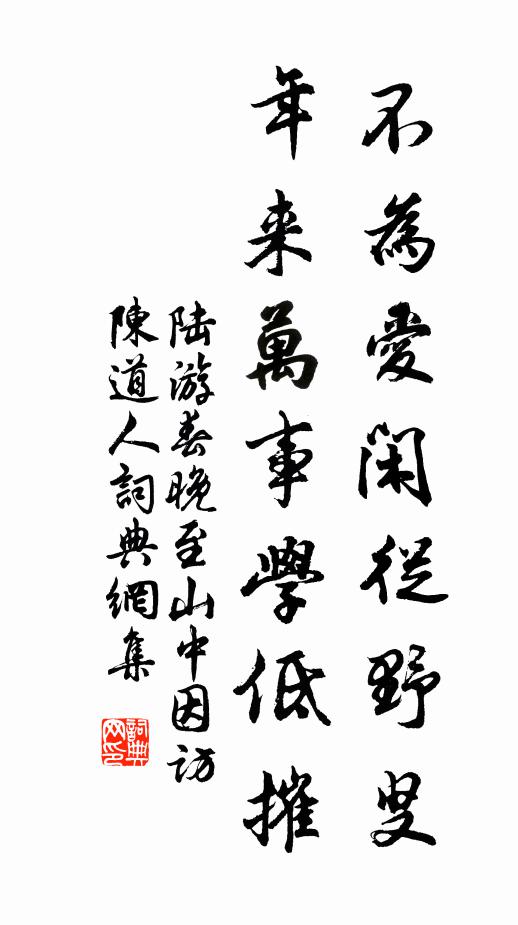 不為愛閑從野叟
年来萬事學低摧
陸游春晚至山中因訪
陳道人詞典網集
詞典網印